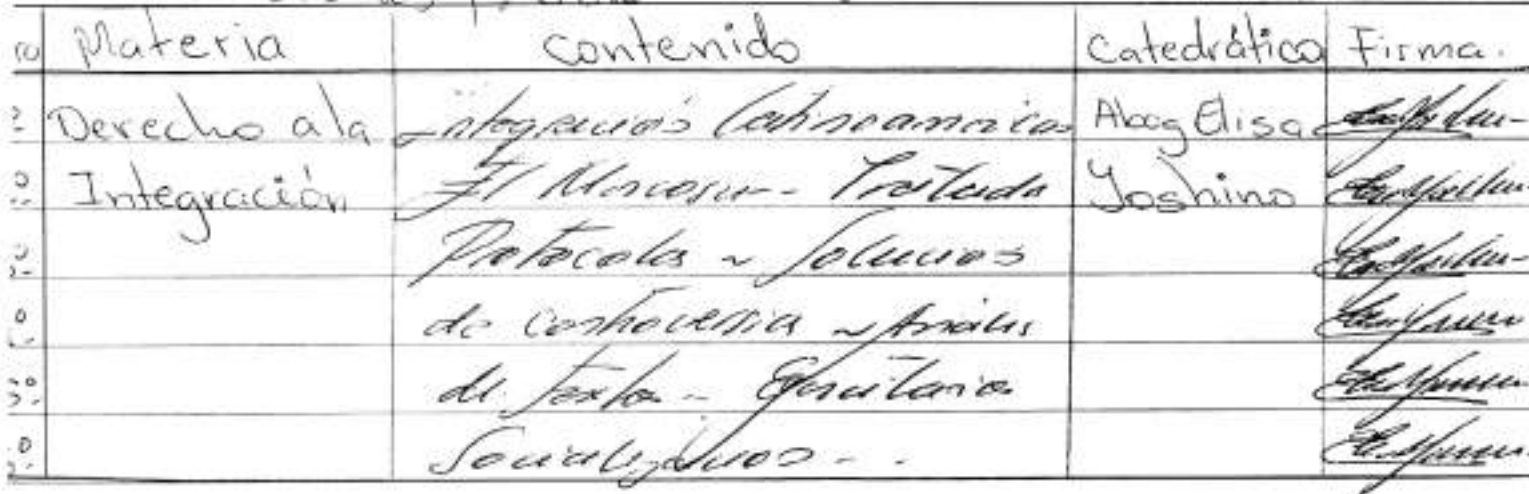 Materia contenido Catedrático Firma.
Derecho a la Integración Latinoamericana Abog Elisa
Integración El Mercosur - Tratado Yoshino
Protocolos ~ Solución
de Controversia ~ Análisis
de Textos - Ejercitario
Socialización - -